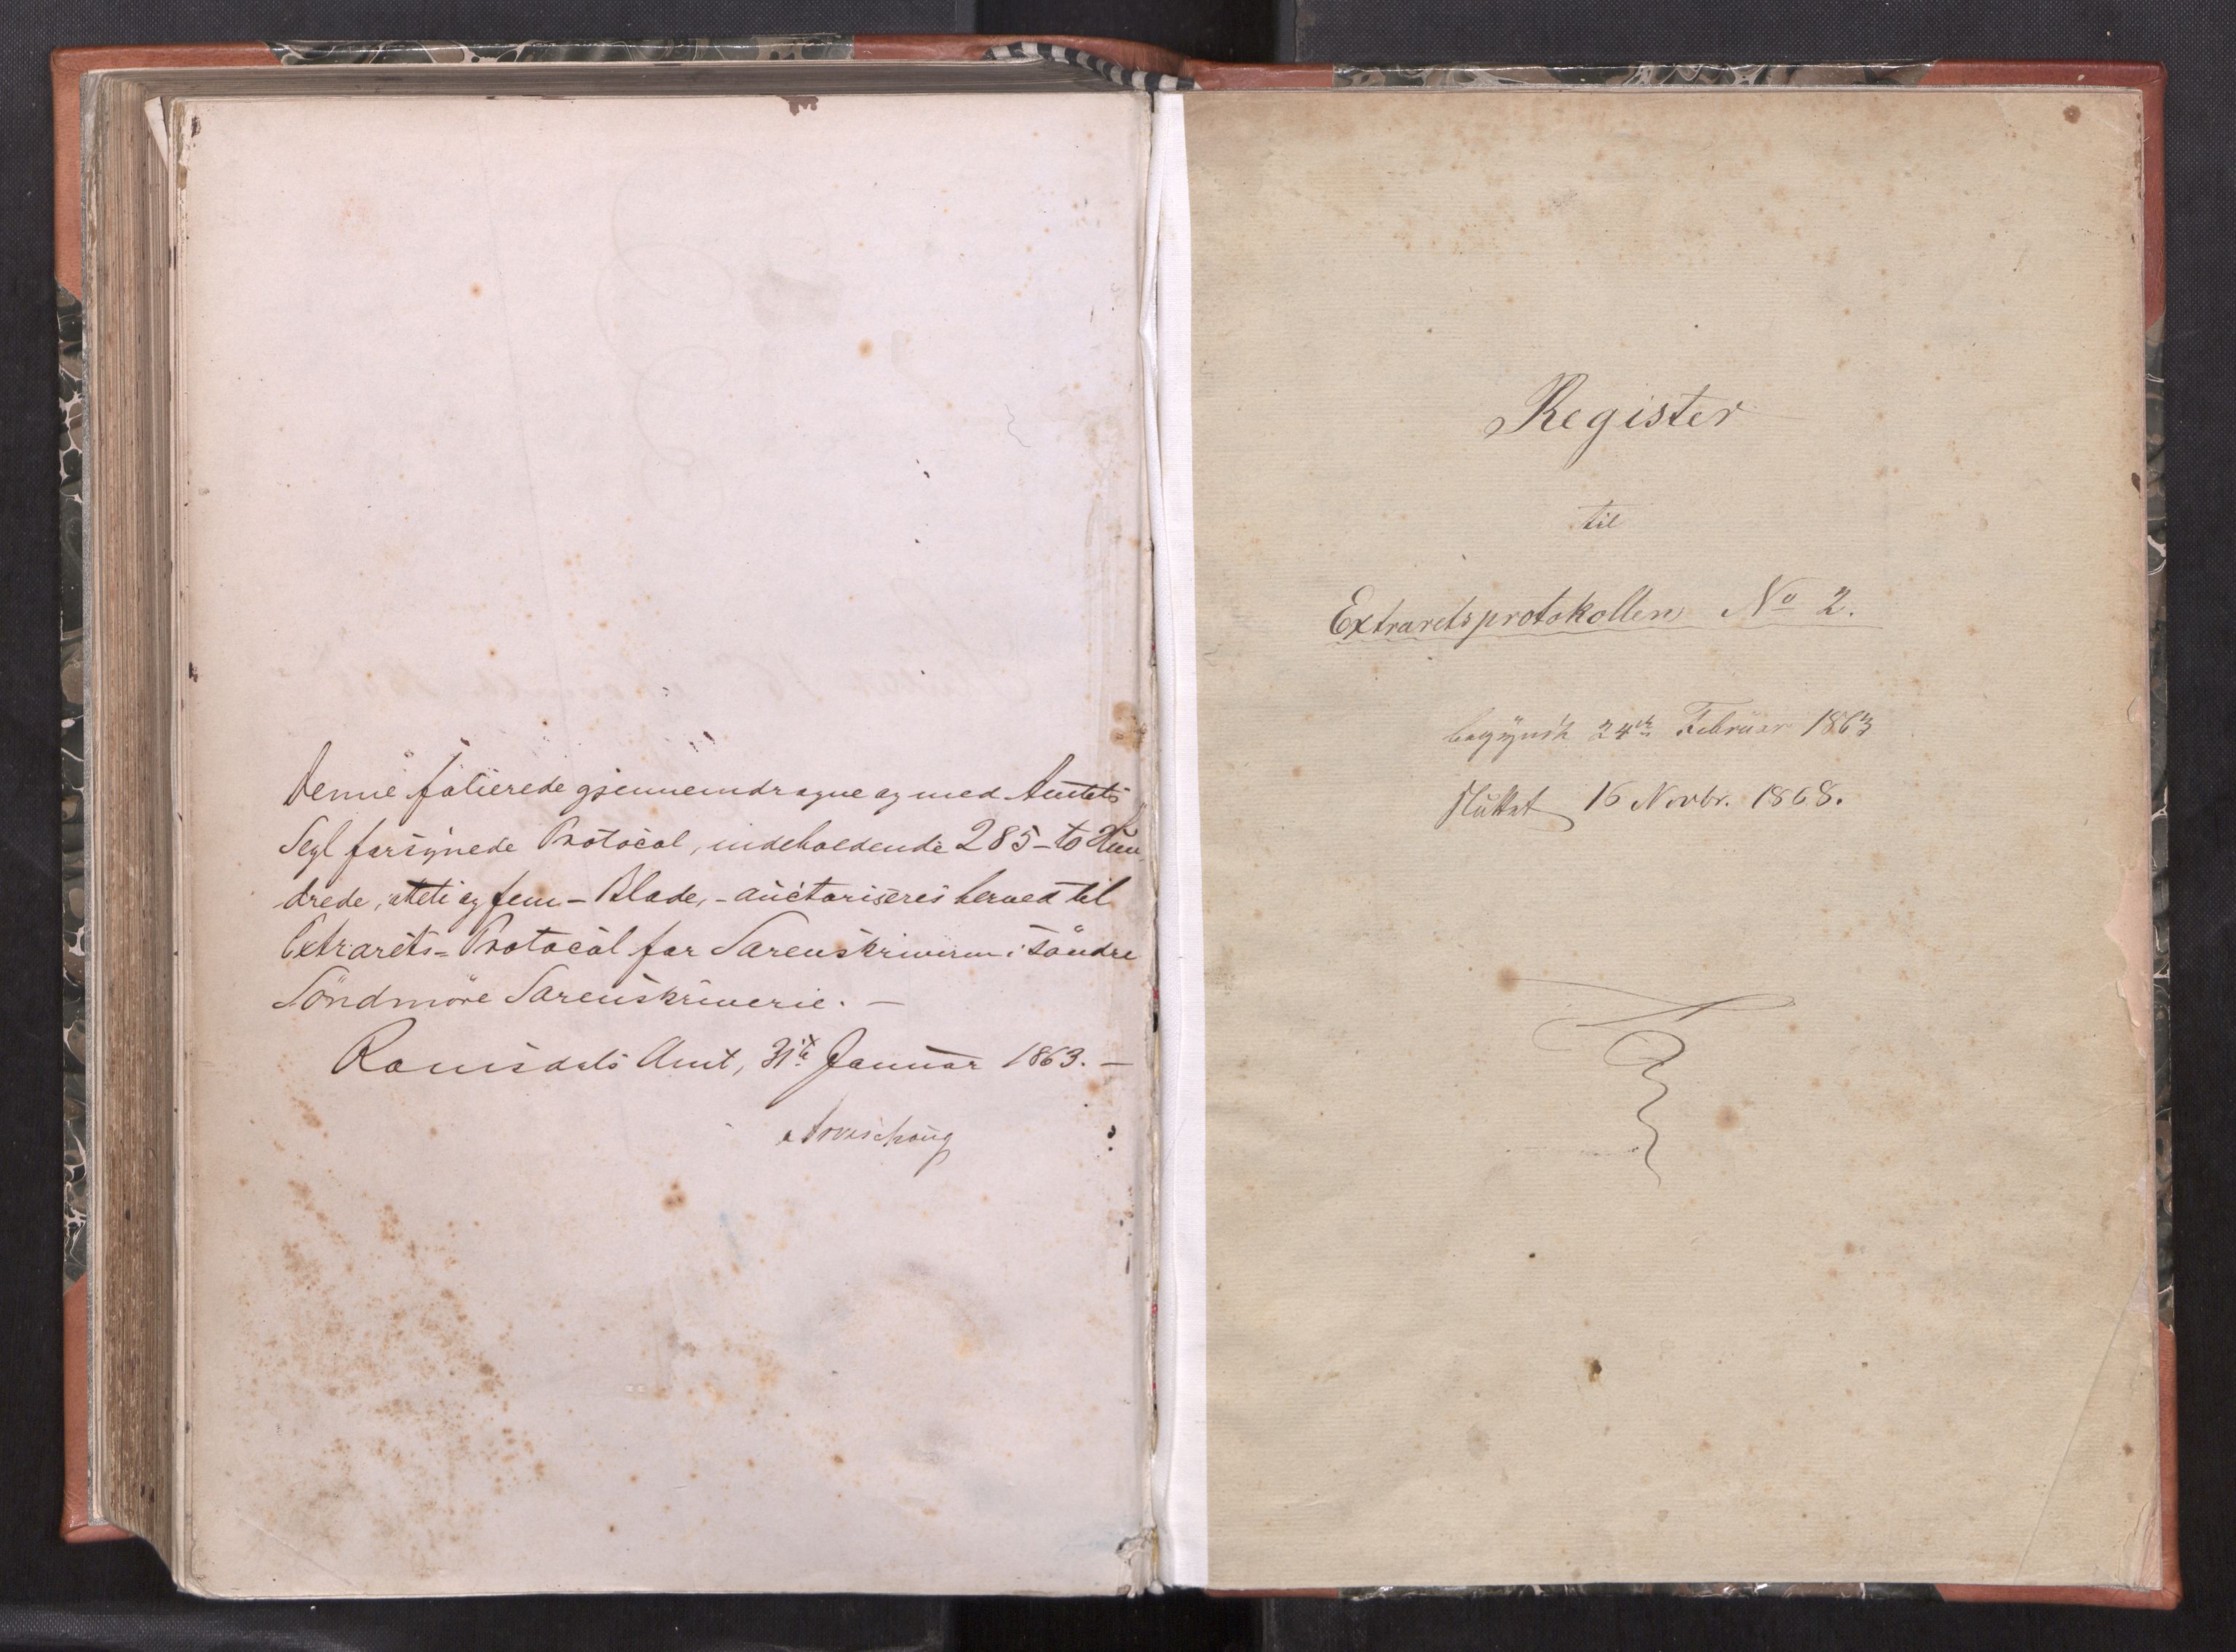 Denne folierede gjennemdragne og med Amtets
Segl forsynede Protocol, indeholdende 285 - to Hun
drede, otteti og fem - Blade, - auctoriseres herved til
Extrarets=Protocol for Sorenskriveren i Söndre
Söndmöre Sorenskriverie. -
Romsdals Amt, 31te Januar 1863. -
Register
til
Extraretsprotokollen No 2.
begyndt 24de Februar 1863
sluttet 16 Novbr. 1868.